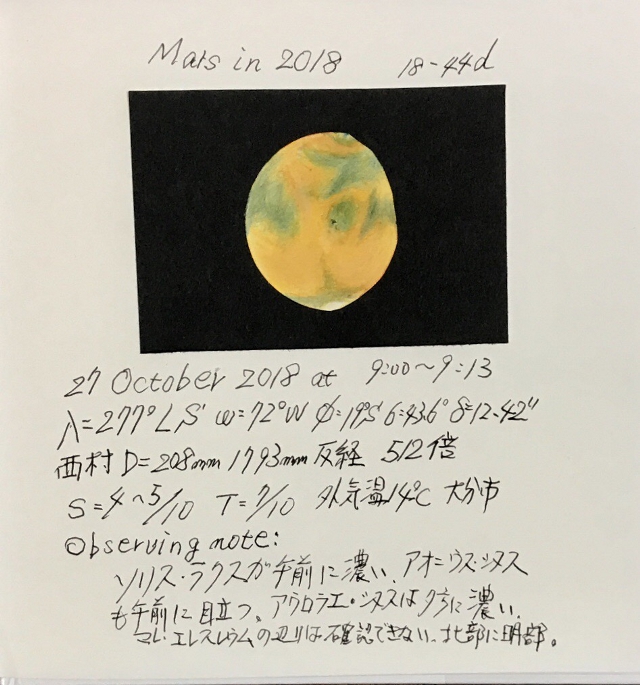 Mars in 2018 18-44d
27 October 2018 at 9:00～9:13
λ=277°LS ω=72°W φ=19°S δ=43.6° δ=12.42"
西村 D=208mm 1793mm反経 512倍
S=4～5/10 T=7/10 外気温14℃ 大分市
Observing note:
ソリス・ラクスが午前に濃い、アオニウス・シヌス
も午前に目立つ。アウロラエ・シヌスは夕方に濃い。
マレ・エレスレウムの辺りは確認できない。北部に明部。